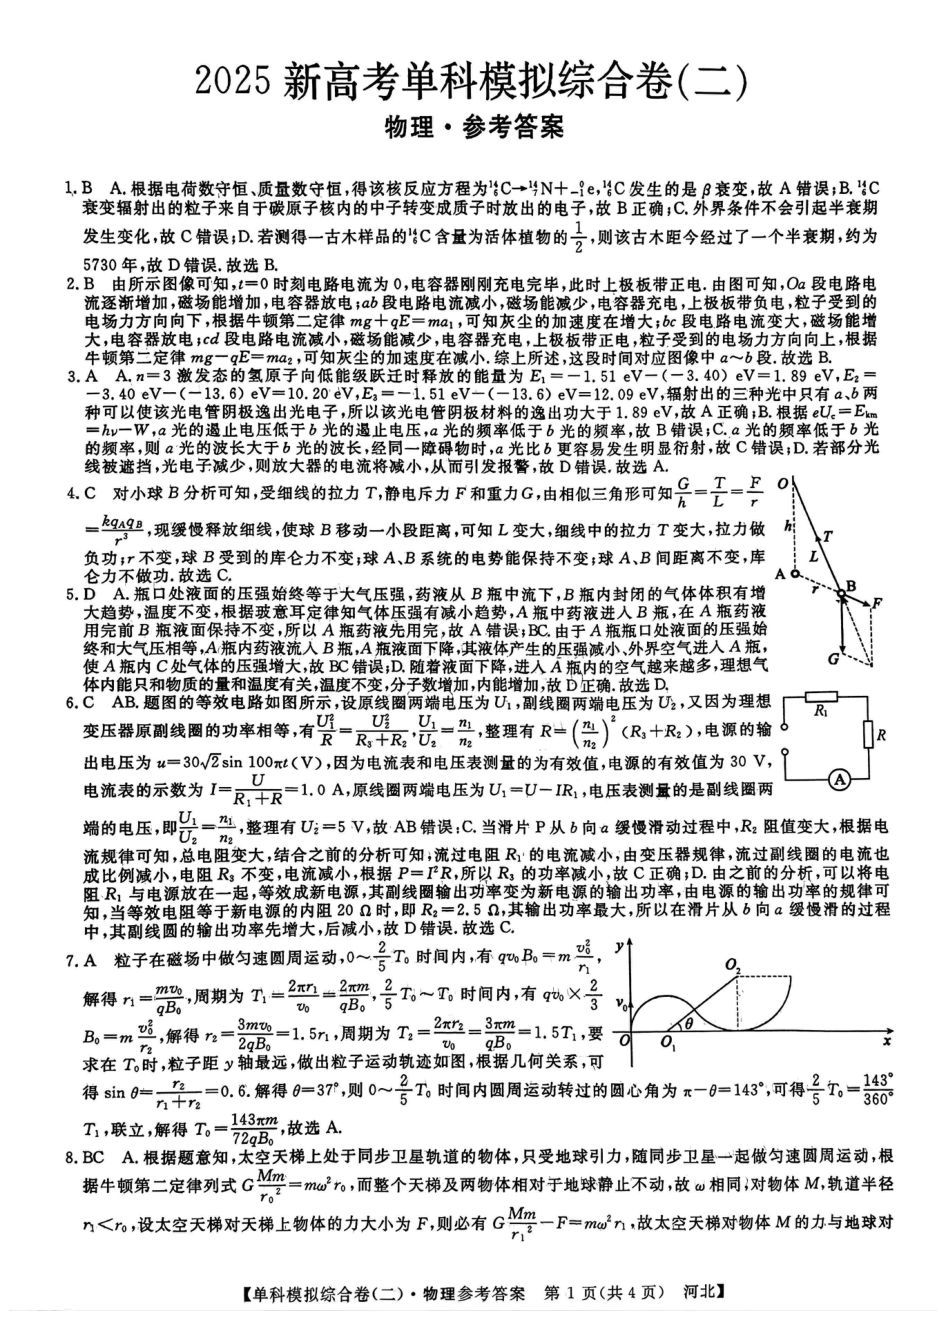 2025 新高考单科模拟综合卷(二)
物理·参考答案
1. B　A. 根据电荷数守恒、质量数守恒,得该核反应方程为¹⁴₆C→¹⁴₇N+₋₁⁰e,¹⁴₆C 发生的是 β 衰变,故 A 错误;B. ¹⁴₆C
衰变辐射出的粒子来自于碳原子核内的中子转变成质子时放出的电子,故 B 正确;C. 外界条件不会引起半衰期
发生变化,故 C 错误;D. 若测得一古木样品的¹⁴₆C 含量为活体植物的1/2,则该古木距今经过了一个半衰期,约为
5730 年,故 D 错误. 故选 B.
2. B　由所示图像可知,t=0 时刻电路电流为 0,电容器刚刚充电完毕,此时上极板带正电. 由图可知,Oa 段电路电
流逐渐增加,磁场能增加,电容器放电;ab 段电路电流减小,磁场能减少,电容器充电,上极板带负电,粒子受到的
电场力方向向下,根据牛顿第二定律 mg+qE=ma₁,可知灰尘的加速度在增大;bc 段电路电流变大,磁场能增
大,电容器放电;cd 段电路电流减小,磁场能减少,电容器充电,上极板带正电,粒子受到的电场力方向向上,根据
牛顿第二定律 mg−qE=ma₂,可知灰尘的加速度在减小. 综上所述,这段时间对应图像中 a~b 段. 故选 B.
3. A　A. n=3 激发态的氢原子向低能级跃迁时释放的能量为 E₁=−1.51 eV−(−3.40) eV=1.89 eV,E₂=
−3.40 eV−(−13.6) eV=10.20 eV,E₃=−1.51 eV−(−13.6) eV=12.09 eV,辐射出的三种光中只有 a、b 两
种可以使该光电管阴极逸出光电子,所以该光电管阴极材料的逸出功大于 1.89 eV,故 A 正确;B. 根据 eU꜀=Eₖₘ
=hν−W,a 光的遏止电压低于 b 光的遏止电压,a 光的频率低于 b 光的频率,故 B 错误;C. a 光的频率低于 b 光
的频率,则 a 光的波长大于 b 光的波长,经同一障碍物时,a 光比 b 更容易发生明显衍射,故 C 错误;D. 若部分光
线被遮挡,光电子减少,则放大器的电流将减小,从而引发报警,故 D 错误. 故选 A.
4. C　对小球 B 分析可知,受细线的拉力 T,静电斥力 F 和重力G,由相似三角形可知G/h=T/L=F/r
=kqAqB/r³,现缓慢释放细线,使球 B 移动一小段距离,可知 L 变大,细线中的拉力 T 变大,拉力做
负功;r 不变,球 B 受到的库仑力不变;球 A、B 系统的电势能保持不变;球 A、B 间距离不变,库
仑力不做功. 故选 C.
O
h
T
L
A
r
B
F
G
5. D　A. 瓶口处液面的压强始终等于大气压强,药液从 B 瓶中流下,B 瓶内封闭的气体体积有增
大趋势,温度不变,根据玻意耳定律知气体压强有减小趋势,A 瓶中药液进入 B 瓶,在 A 瓶药液
用完前 B 瓶液面保持不变,所以 A 瓶药液先用完,故 A 错误;BC. 由于 A 瓶瓶口处液面的压强始
终和大气压相等,A 瓶内药液流入 B 瓶,A 瓶液面下降,其液体产生的压强减小、外界空气进入 A 瓶,
使 A 瓶内 C 处气体的压强增大,故 BC 错误;D. 随着液面下降,进入 A 瓶内的空气越来越多,理想气
体内能只和物质的量和温度有关,温度不变,分子数增加,内能增加,故 D 正确. 故选 D.
6. C　AB. 题图的等效电路如图所示,设原线圈两端电压为 U₁,副线圈两端电压为 U₂,又因为理想
变压器原副线圈的功率相等,有U₁²/R=U₂²/(R₃+R₂),U₁/U₂=n₁/n₂,整理有 R=(n₁/n₂)²(R₃+R₂),电源的输
出电压为 u=30√2 sin 100πt(V),因为电流表和电压表测量的为有效值,电源的有效值为 30 V,
电流表的示数为 I=U/(R₁+R)=1.0 A,原线圈两端电压为 U₁=U−IR₁,电压表测量的是副线圈两
R₁
R
A
端的电压,即U₁/U₂=n₁/n₂,整理有 U₂=5 V,故 AB 错误;C. 当滑片 P 从 b 向 a 缓慢滑动过程中,R₂ 阻值变大,根据电
流规律可知,总电阻变大,结合之前的分析可知,流过电阻 R₁ 的电流减小,由变压器规律,流过副线圈的电流也
成比例减小,电阻 R₃ 不变,电流减小,根据 P=I²R,所以 R₃ 的功率减小,故 C 正确;D. 由之前的分析,可以将电
阻 R₁ 与电源放在一起,等效成新电源,其副线圈输出功率变为新电源的输出功率,由电源的输出功率的规律可
知,当等效电阻等于新电源的内阻 20 Ω时,即 R₂=2.5 Ω,其输出功率最大,所以在滑片从 b 向 a 缓慢滑的过程
中,其副线圆的输出功率先增大,后减小,故 D 错误. 故选 C.
7. A　粒子在磁场中做匀速圆周运动,0~2/5 T₀ 时间内,有 qv₀B₀=m v₀²/r₁,
解得 r₁=mv₀/qB₀,周期为 T₁=2πr₁/v₀=2πm/qB₀,2/5 T₀~T₀ 时间内,有 qv₀×2/3
B₀=m v₀²/r₂,解得 r₂=3mv₀/2qB₀=1.5r₁,周期为 T₂=2πr₂/v₀=3πm/qB₀=1.5T₁,要
求在 T₀时,粒子距 y 轴最远,做出粒子运动轨迹如图,根据几何关系,可
y
O₂
v₀
θ
O
O₁
x
得 sin θ=r₂/(r₁+r₂)=0.6. 解得 θ=37°,则 0~2/5 T₀ 时间内圆周运动转过的圆心角为 π−θ=143°,可得2/5 T₀=143°/360°
T₁,联立,解得 T₀=143πm/72qB₀,故选 A.
8. BC　A. 根据题意知,太空天梯上处于同步卫星轨道的物体,只受地球引力,随同步卫星一起做匀速圆周运动,根
据牛顿第二定律列式 G Mm/r₀²=mω²r₀,而整个天梯及两物体相对于地球静止不动,故 ω 相同;对物体 M,轨道半径
r₁<r₀,设太空天梯对天梯上物体的力大小为 F,则必有 G Mm/r₁²−F=mω²r₁,故太空天梯对物体 M 的力与地球对
【单科模拟综合卷(二)·物理参考答案　第 1 页(共 4 页)　河北】